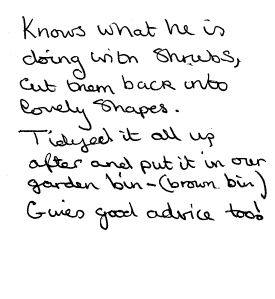 Knows what he is
doing with Shrubs,
cut them back into
lovely shapes.
Tidyed it all up
after and put it in our
garden bin-(brown bin)
Gives good advice too!